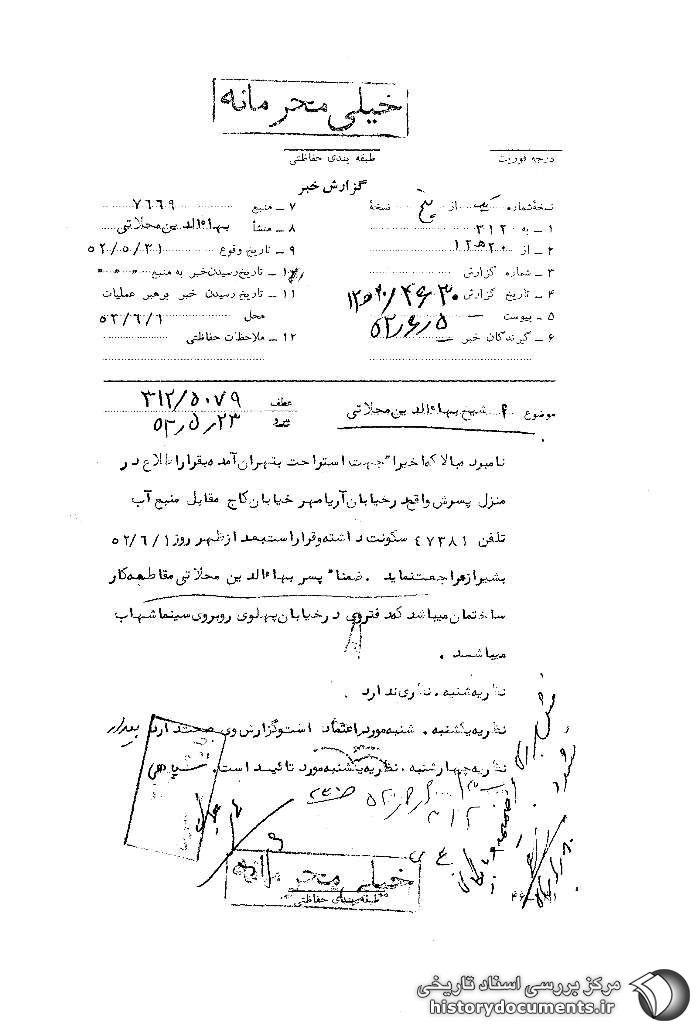 خیلی محرمانه
درجه فوریت
طبقه بندی حفاظتی
گزارش خبر
نسخهٔ شماره یک از پنج نسخهٔ
۱ـ به ۳۱۲
۲ـ از ۱۲ﻫ۲۰
۳ـ شماره گزارش
۴ـ تاریخ گزارش
۵ـ پیوست —
۶ـ گیرندگان خبر
۷ـ منبع ۷۶۶۹
۸ـ منشأ بهاءالدین محلاتی
۹ـ تاریخ وقوع ۵۲/۵/۳۱
۱۰ـ تاریخ رسیدن خبر به منبع " " "
۱۱ـ تاریخ رسیدن خبر برهبر عملیات
محل ۵۲/۶/۱
۱۲ـ ملاحظات حفاظتی
۵۲٫۶٫۵
موضوع شیخ بهاءالدین محلاتی
عطف ۳۱۲/۵۰۷۹
۵۲٫۵٫۲۳
نامبرد ه بالا که اخیرا" جهت استراحت بتهران آمده بقرار اطلاع در
منزل پسرش واقع در خیابان آریامهر خیابان کاج مقابل منبع آب
تلفن ۴۷۳۸۱ سکونت داشته و قرار است بعد از ظهر روز ۵۲/۶/۱
بشیراز مراجعت نماید . ضمنا" پسر بهاءالدین محلاتی مقاطعه کار
ساختمان میباشد که دفتر وی در خیابان پهلوی روبروی سینما شهاب
میباشد .
نظریه شنبه . نظری ندارد .
نظریه یکشنبه . شنبه مورد اعتماد است و گزارش وی صحت دارد بیدار
نظریه چهارشنبه . نظریه یکشنبه مورد تائید است . سپاهی
۳۱۲
خیلی محرمانه
طبقه بندی حفاظتی
مرکز بررسی اسناد تاریخی
historydocuments.ir